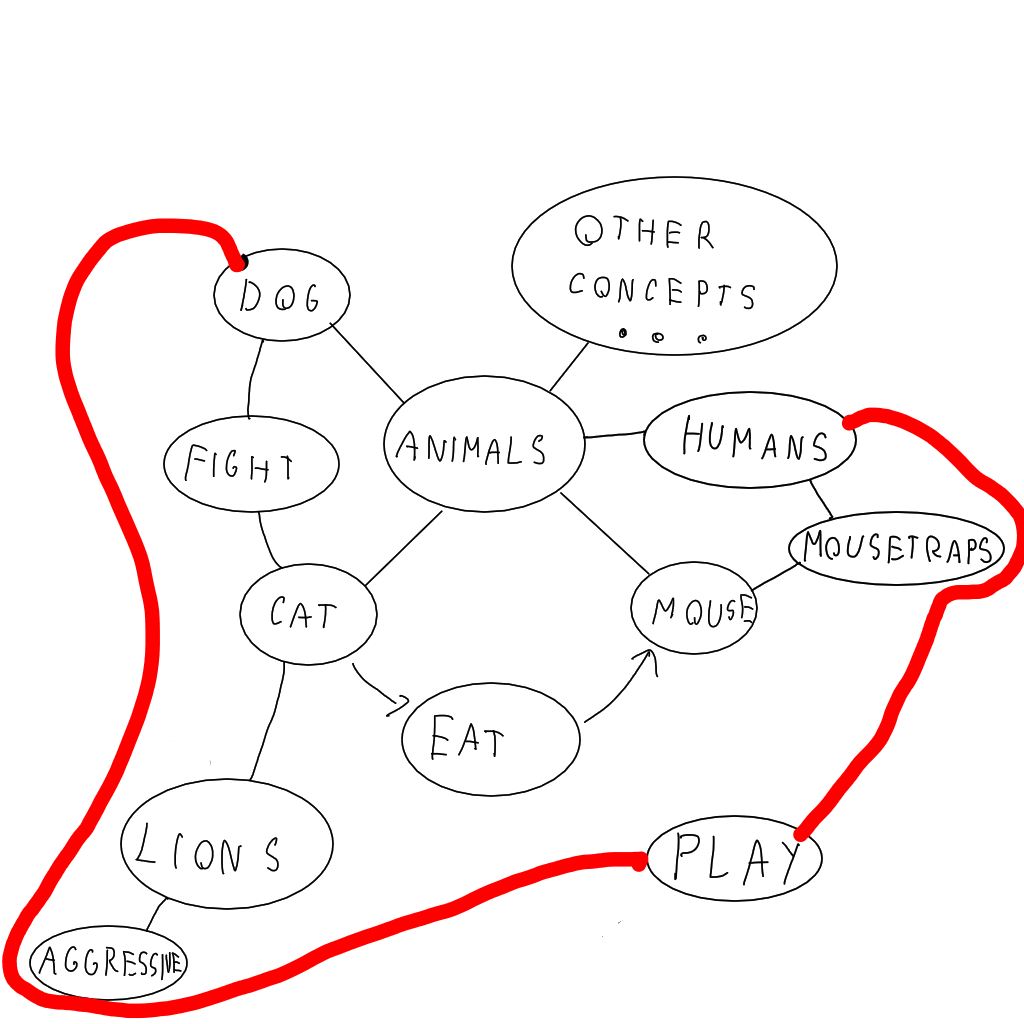 OTHER
CONCEPTS
...
DOG
HUMANS
ANIMALS
FIGHT
MOUSETRAPS
CAT
MOUSE
EAT
LIONS
PLAY
AGGRESSIVE